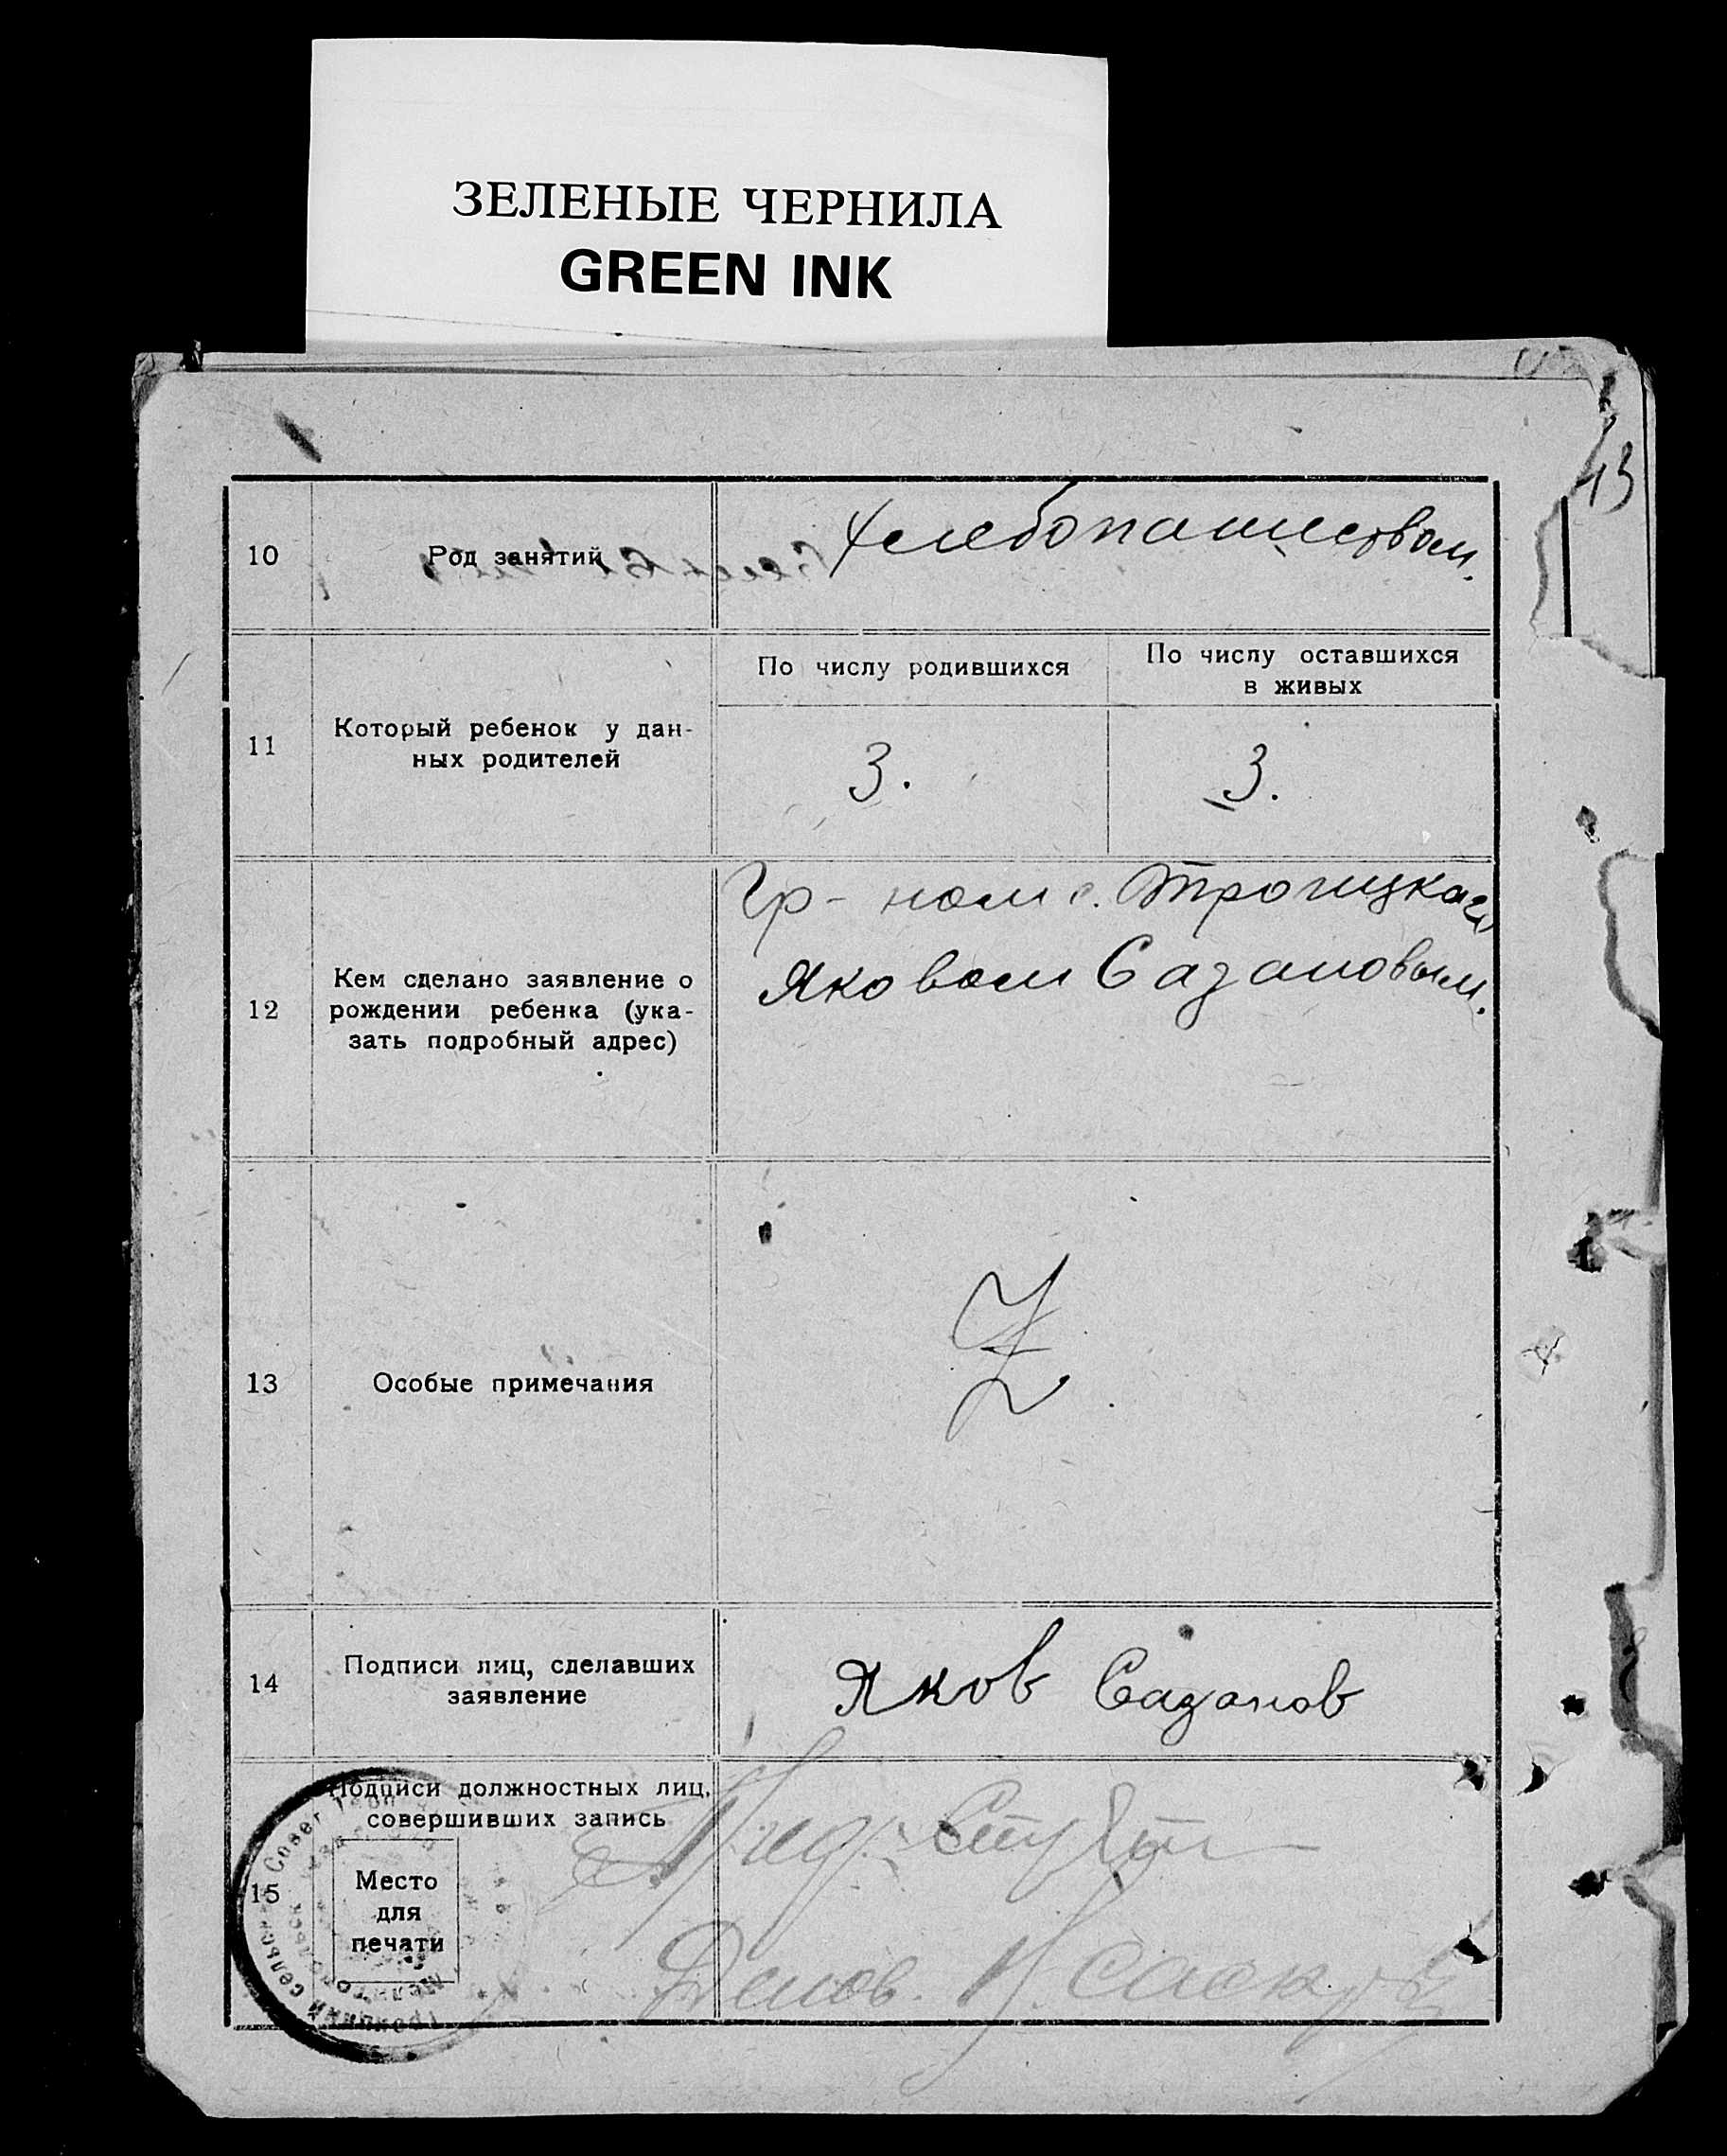 ЗЕЛЕНЫЕ ЧЕРНИЛА
GREEN INK
13
10
Род занятий
Хлебопашеством.
11
Который ребенок у дан-
ных родителей
По числу родившихся
По числу оставшихся
в живых
3.
3.
12
Кем сделано заявление о
рождении ребенка (ука-
зать подробный адрес)
Гр-ном с. Троицкаго
Яковом Сазановым.
13
Особые примечания
Z
14
Подписи лиц, сделавших
заявление
Яков Сазонов
15
Подписи должностных лиц,
совершивших запись
Место
для
печати
Пред.
Делов.